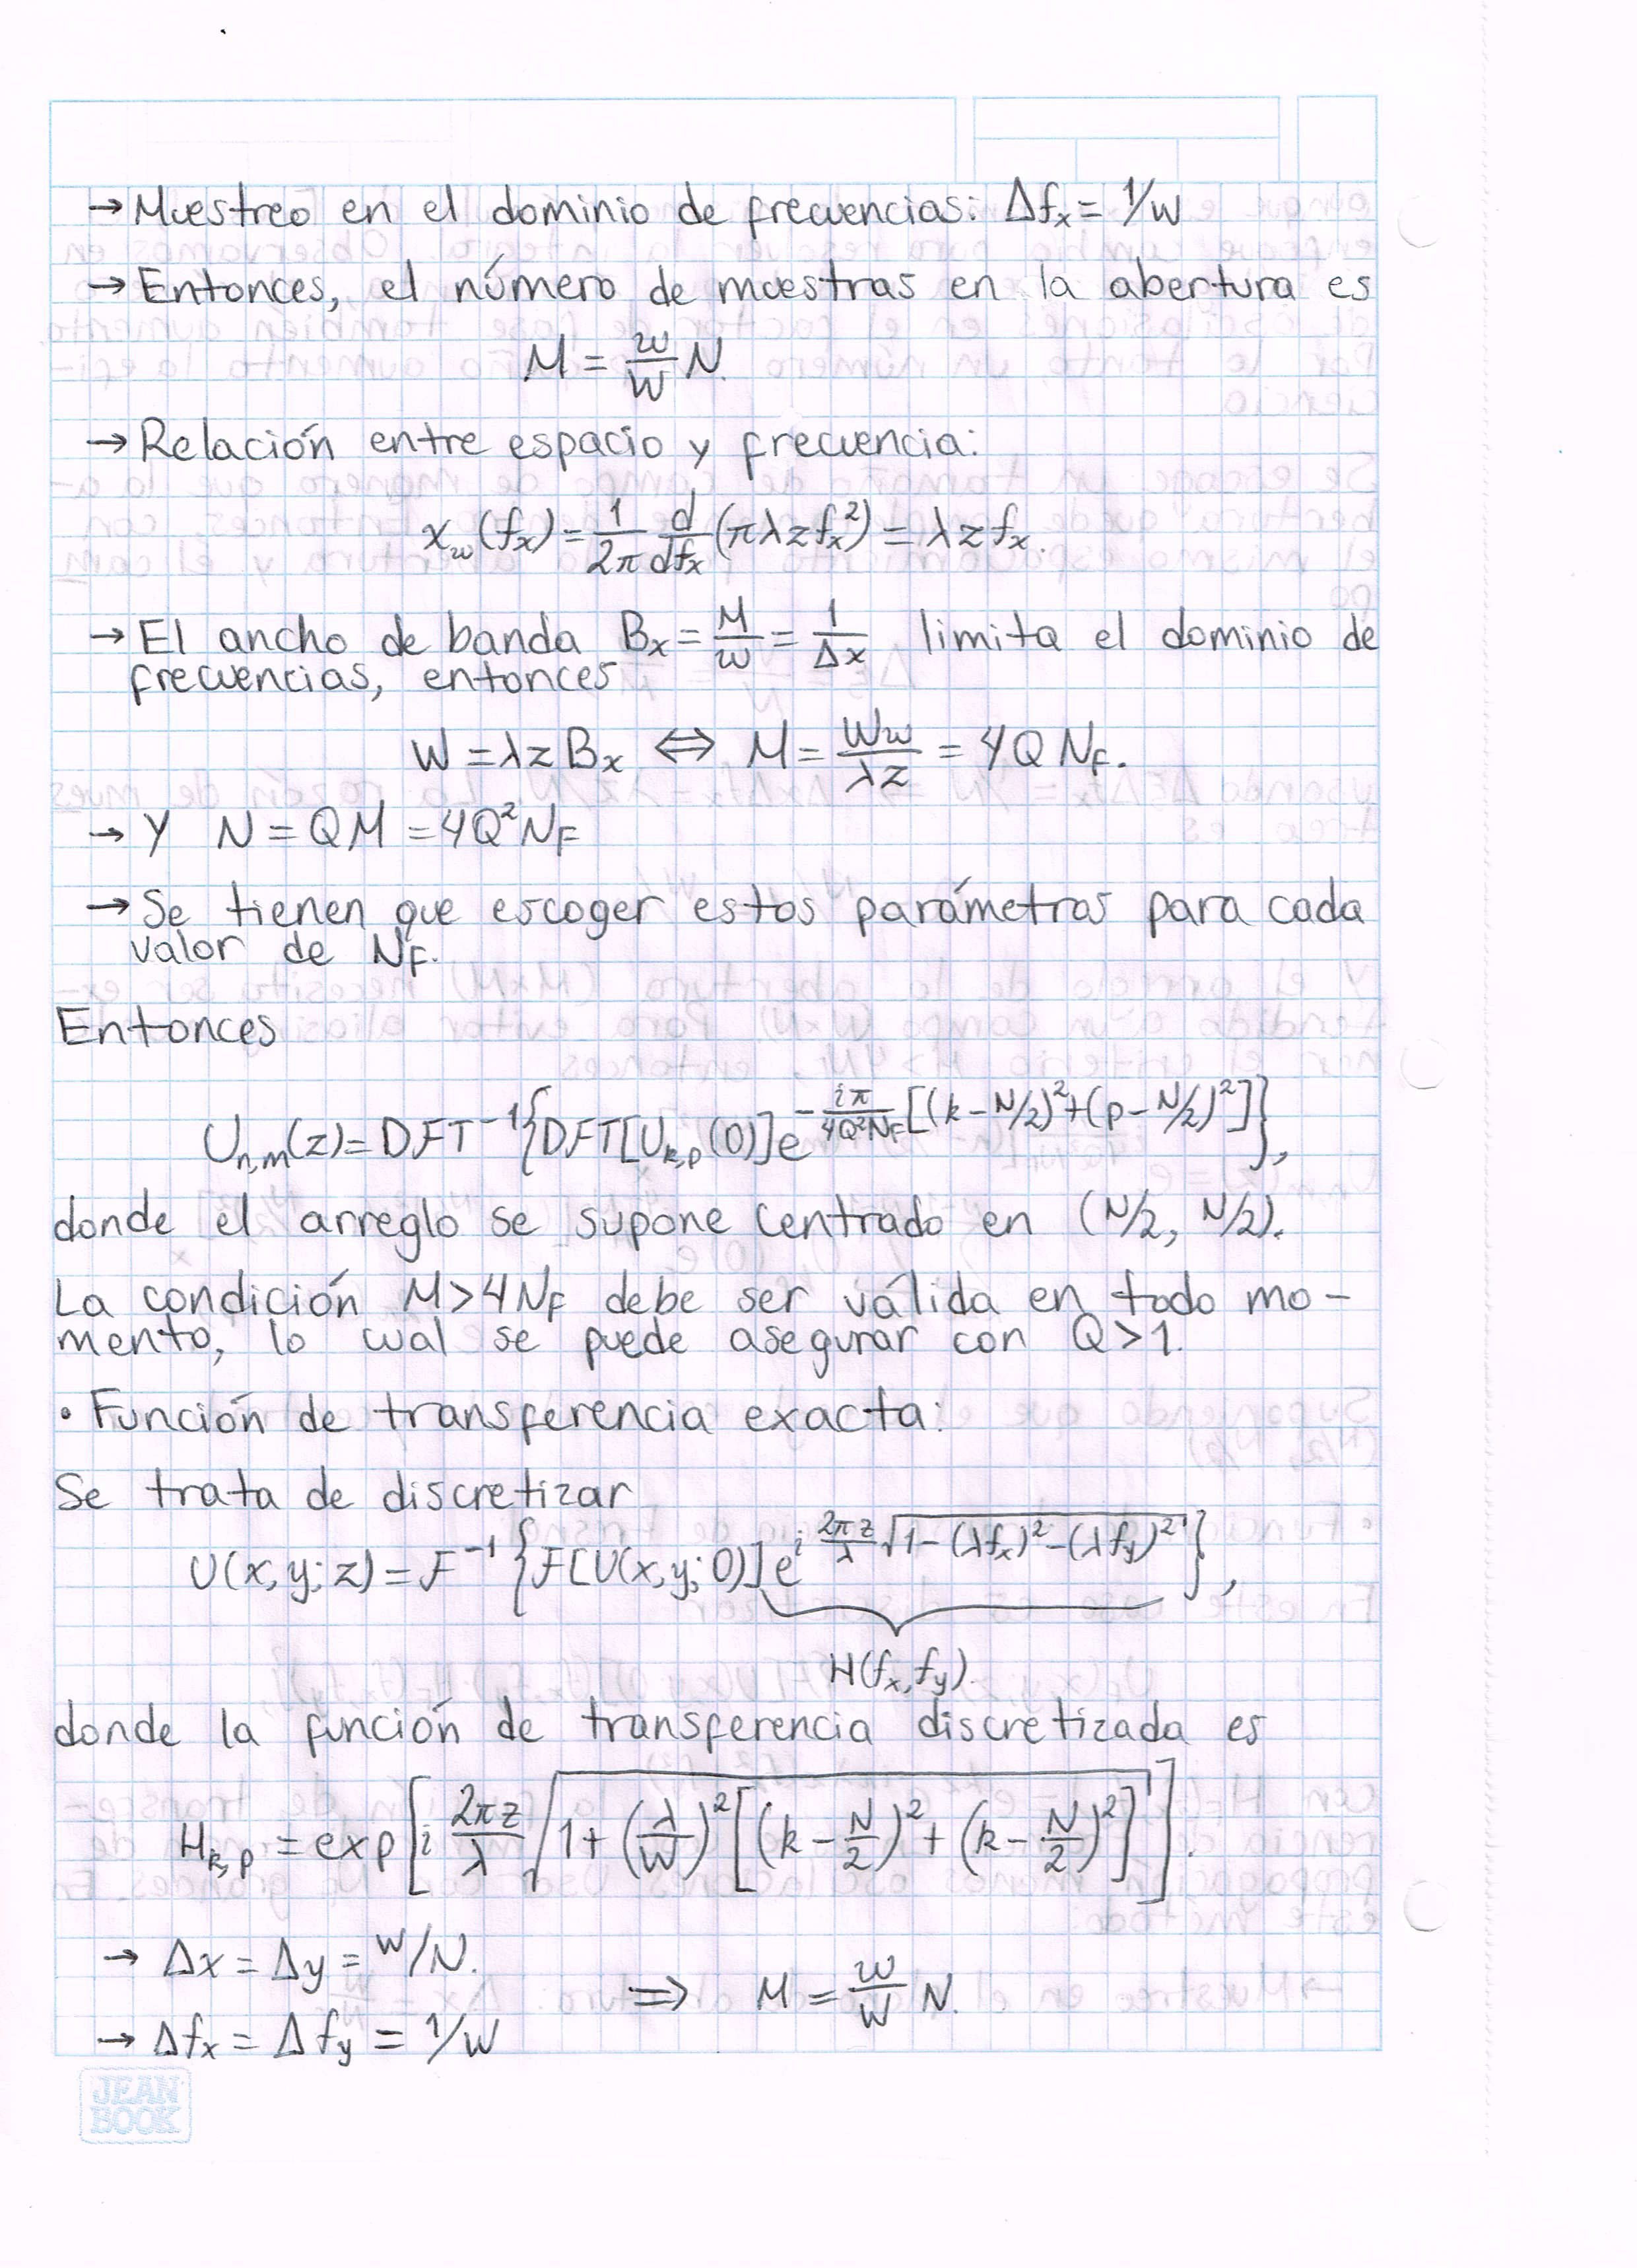 → Muestreo en el dominio de frecuencias: Δfₓ = 1/W
→ Entonces, el número de muestras en la abertura es
M = w/W N.
→ Relación entre espacio y frecuencia:
x_w(fₓ) = 1/2π d/dfₓ (πλzfₓ²) = λzfₓ.
→ El ancho de banda Bₓ = M/w = 1/Δx limita el dominio de
frecuencias, entonces
W = λzBₓ ⇔ M = Ww/λz = 4QN_F.
→ Y N = QM = 4Q²N_F
→ Se tienen que escoger estos parámetros para cada
valor de N_F.
Entonces
U_{n,m}(z) = DFT⁻¹{DFT[U_{k,p}(0)]e^{-iπ/4Q²N_F [(k-N/2)²+(p-N/2)²]}},
donde el arreglo se supone centrado en (N/2, N/2).
La condición M>4N_F debe ser válida en todo mo-
mento, lo cual se puede asegurar con Q>1.
• Función de transferencia exacta:
Se trata de discretizar
U(x,y;z) = F⁻¹{F[U(x,y;0)]e^{i 2πz/λ √(1-(λfₓ)²-(λf_y)²)}},
H(fₓ,f_y).
donde la función de transferencia discretizada es
H_{k,p} = exp[i 2πz/λ √(1+(λ/W)²[(k-N/2)²+(k-N/2)²])].
→ Δx = Δy = W/N.
⇒ M = w/W N.
→ Δfₓ = Δf_y = 1/W
JEAN
BOOK